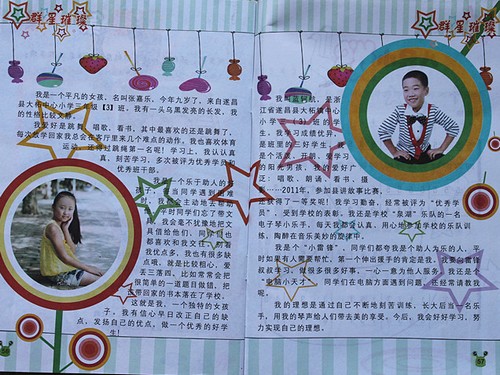 群星璀璨
我是一个平凡的女孩，名叫张嘉乐，今年九岁了，来自遂昌
县大柘中心小学三年级【3】班。我有一头乌黑发亮的长发，我
的性格比较文静。
我爱好是跳舞、唱歌、看书，其中最喜欢的还是跳舞了，
每次放学回家我总会在客厅里来几个难点的动作。我也喜欢体育
运动，还得过跳绳第一名呢！学习上，我认认真
真、刻苦学习，多次被评为优秀学员和
优秀班干部。
我是一个乐于助人的
孩子，看当同学遇到困难
时，我就会主动地去帮助
平时同学们忘了带文
具，我会毫不犹豫地把文
具借给他们，同学们也
都喜欢和我交往。别看
我优点多，我也有很多缺
点哦，我是比较粗心，爱
丢三落四。比如常常会把
很简单的一道题目做错，把
要带回家的书本落在了学校。
这就是我，一个独特的女孩
子。我有信心早日改正自己的缺
点，发扬自己的优点，做一个优秀的好学
生！
群星璀璨
江省遂昌县大柘镇中心
小学三（3）班的
生。我学习成绩优异，
是班里的三好学生。我
是个活泼、开朗、爱学习
的阳光男孩，我的爱好广
泛：唱歌，朗诵、看书、摄
……2011年，参加县讲故事比赛，
还获得了一等奖呢！我学习勤奋，经常被评为“优秀学
员”，受到学校的表彰。我还是学校“泉湖”乐队的一名
电子琴小乐手，每天我都会认真、用心地参加学校的乐队训
练，陶醉在音乐美妙的旋律中。
我是个“小雷锋”，同学们都夸我是个助人为乐的人。平
时如果有人需要帮忙，第一个伸出援手的肯定是我。我要向雷锋
叔叔学习，做很多很多好事，一心一意为他人服务。我还是个
“电脑小天才”，同学们在电脑方面遇到问题，还经常请教我
呢。
我的理想是通过自己不断地刻苦训练，长大后当一名乐
手，用我的琴声给人们带去美的享受。今后，我会好好学习，努
力实现自己的理想。
57